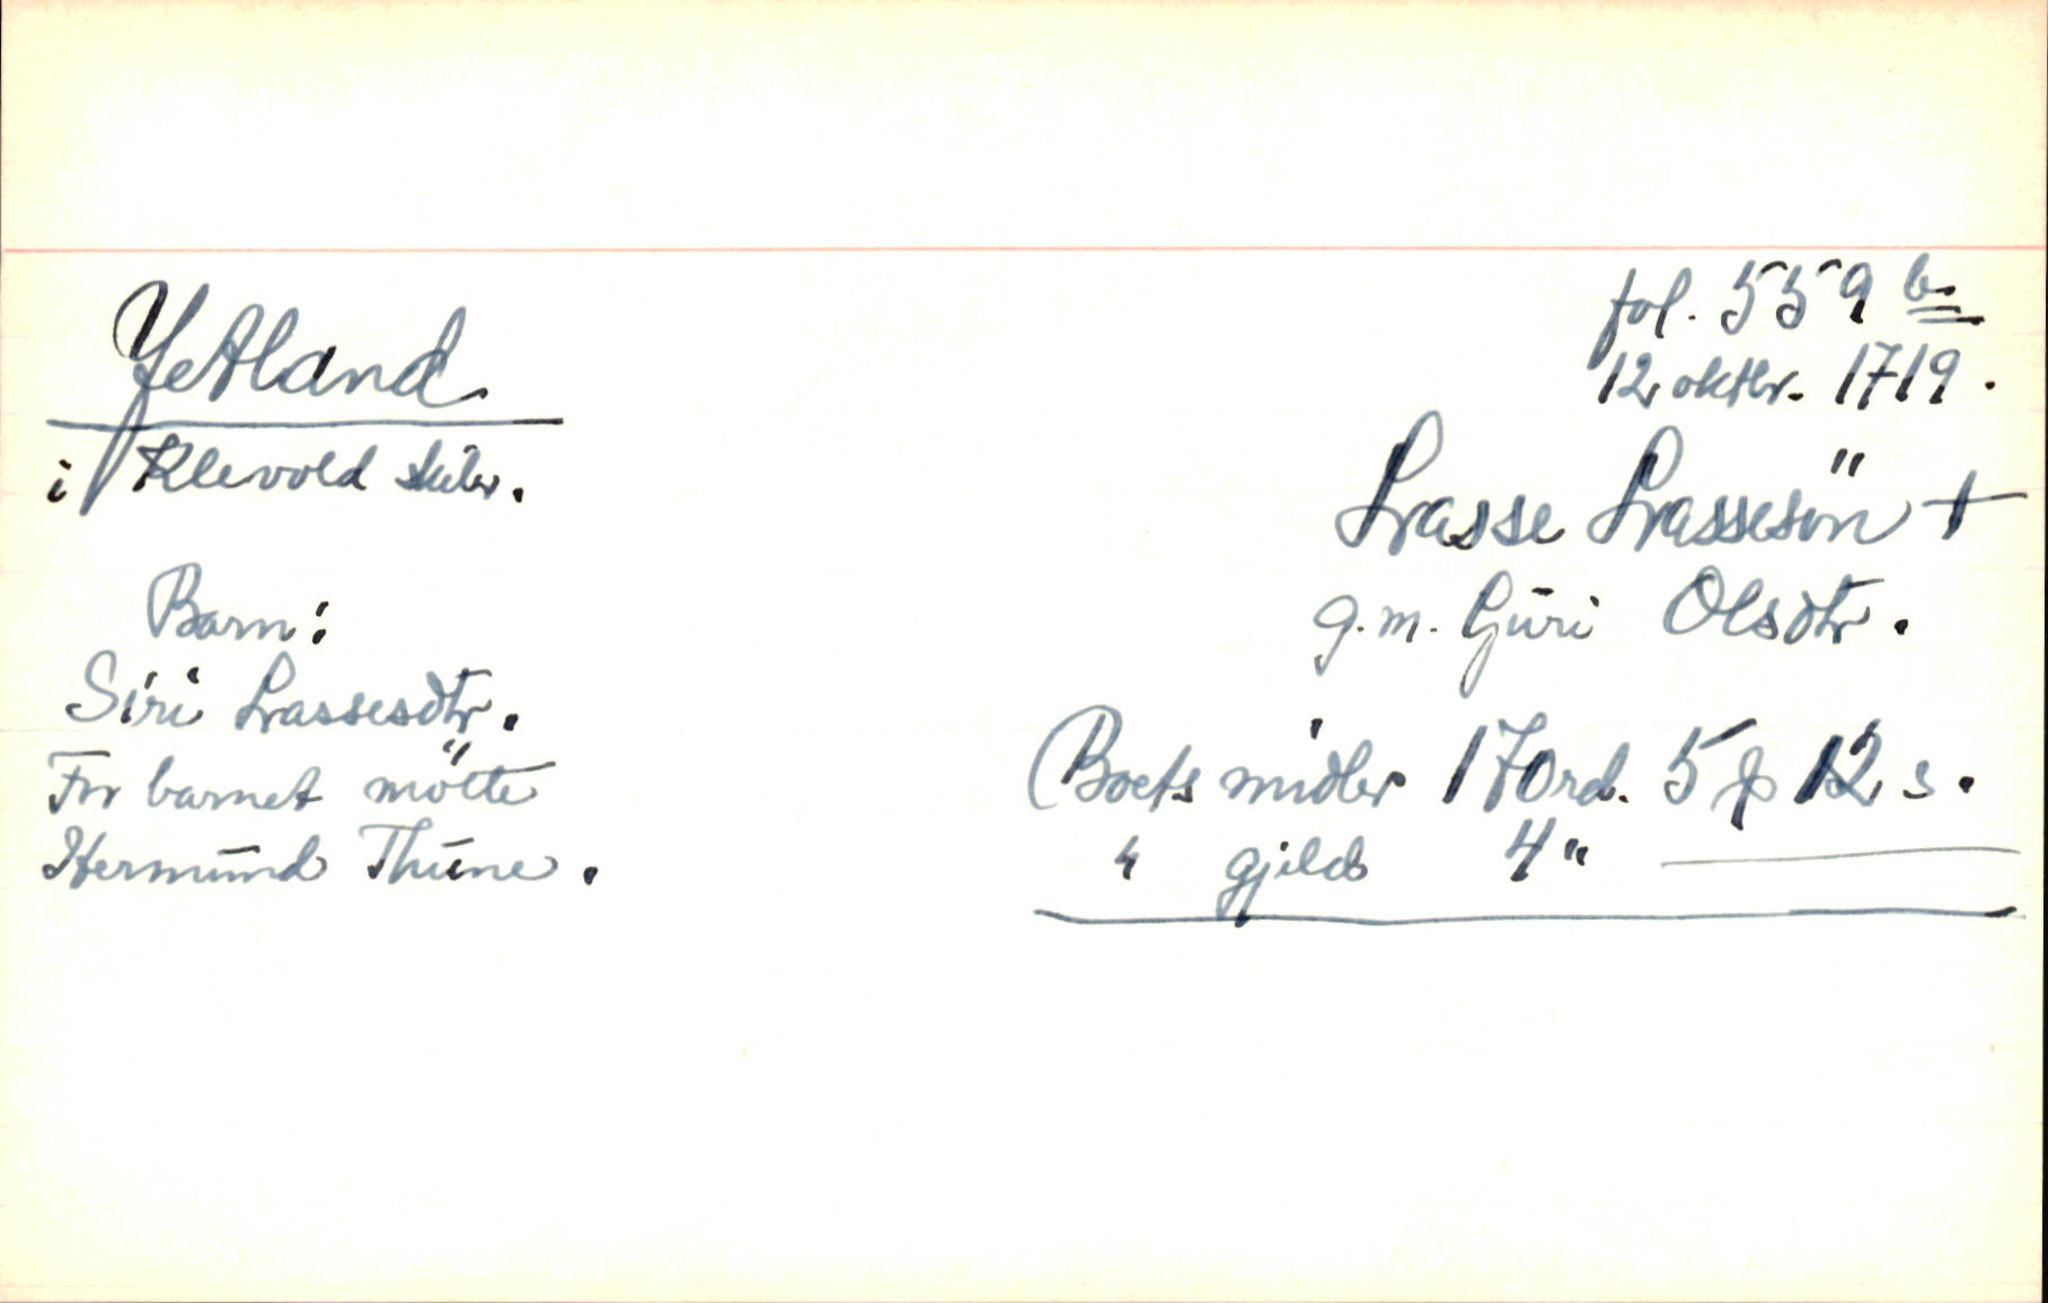 fol. 559 b.
12 oktbr. 1719.
Yetland.
i Klevold skibr.
Lasse Lassesön +
g.m. Guri Olsdtr.
Barn:
Siri Lassesdtr.
For barnet mötte
Hermund Thune.
Boets midler 170 rd. 5 ƒ 12 s.
" gjeld 4 "